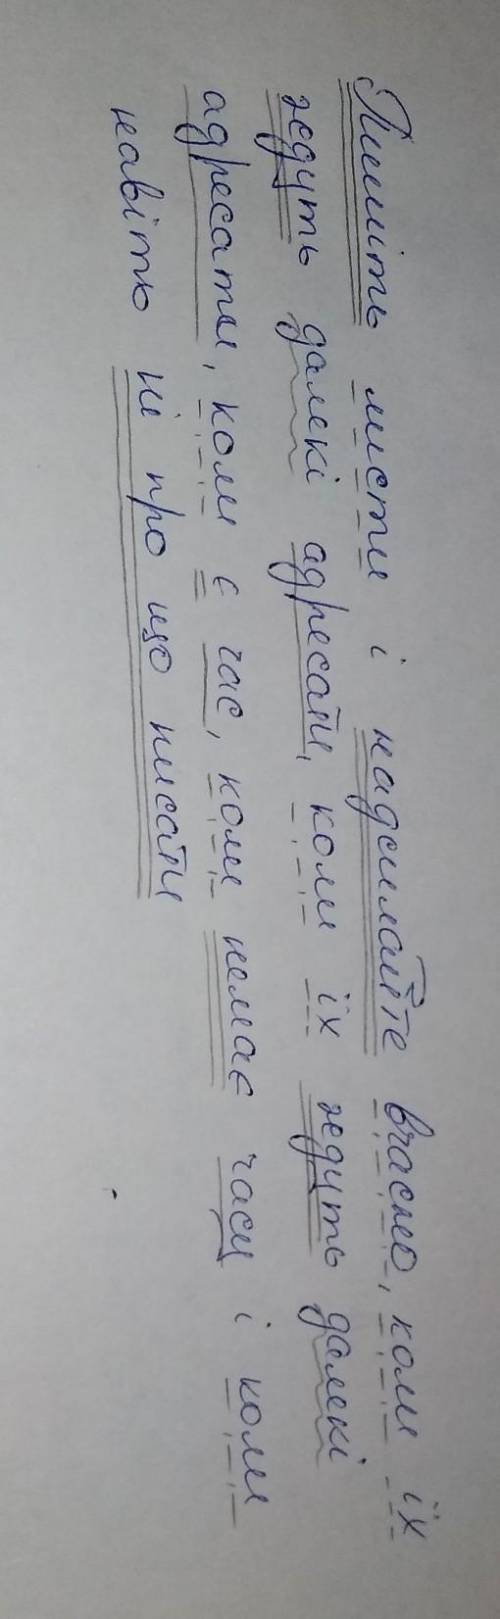 Пишіть листи і надсилайте вчасно, коли їх
ждуть далекі адресати, коли їх ждуть далекі
адресати, коли є час, коли немає часу і коли
навіть ні про що писати